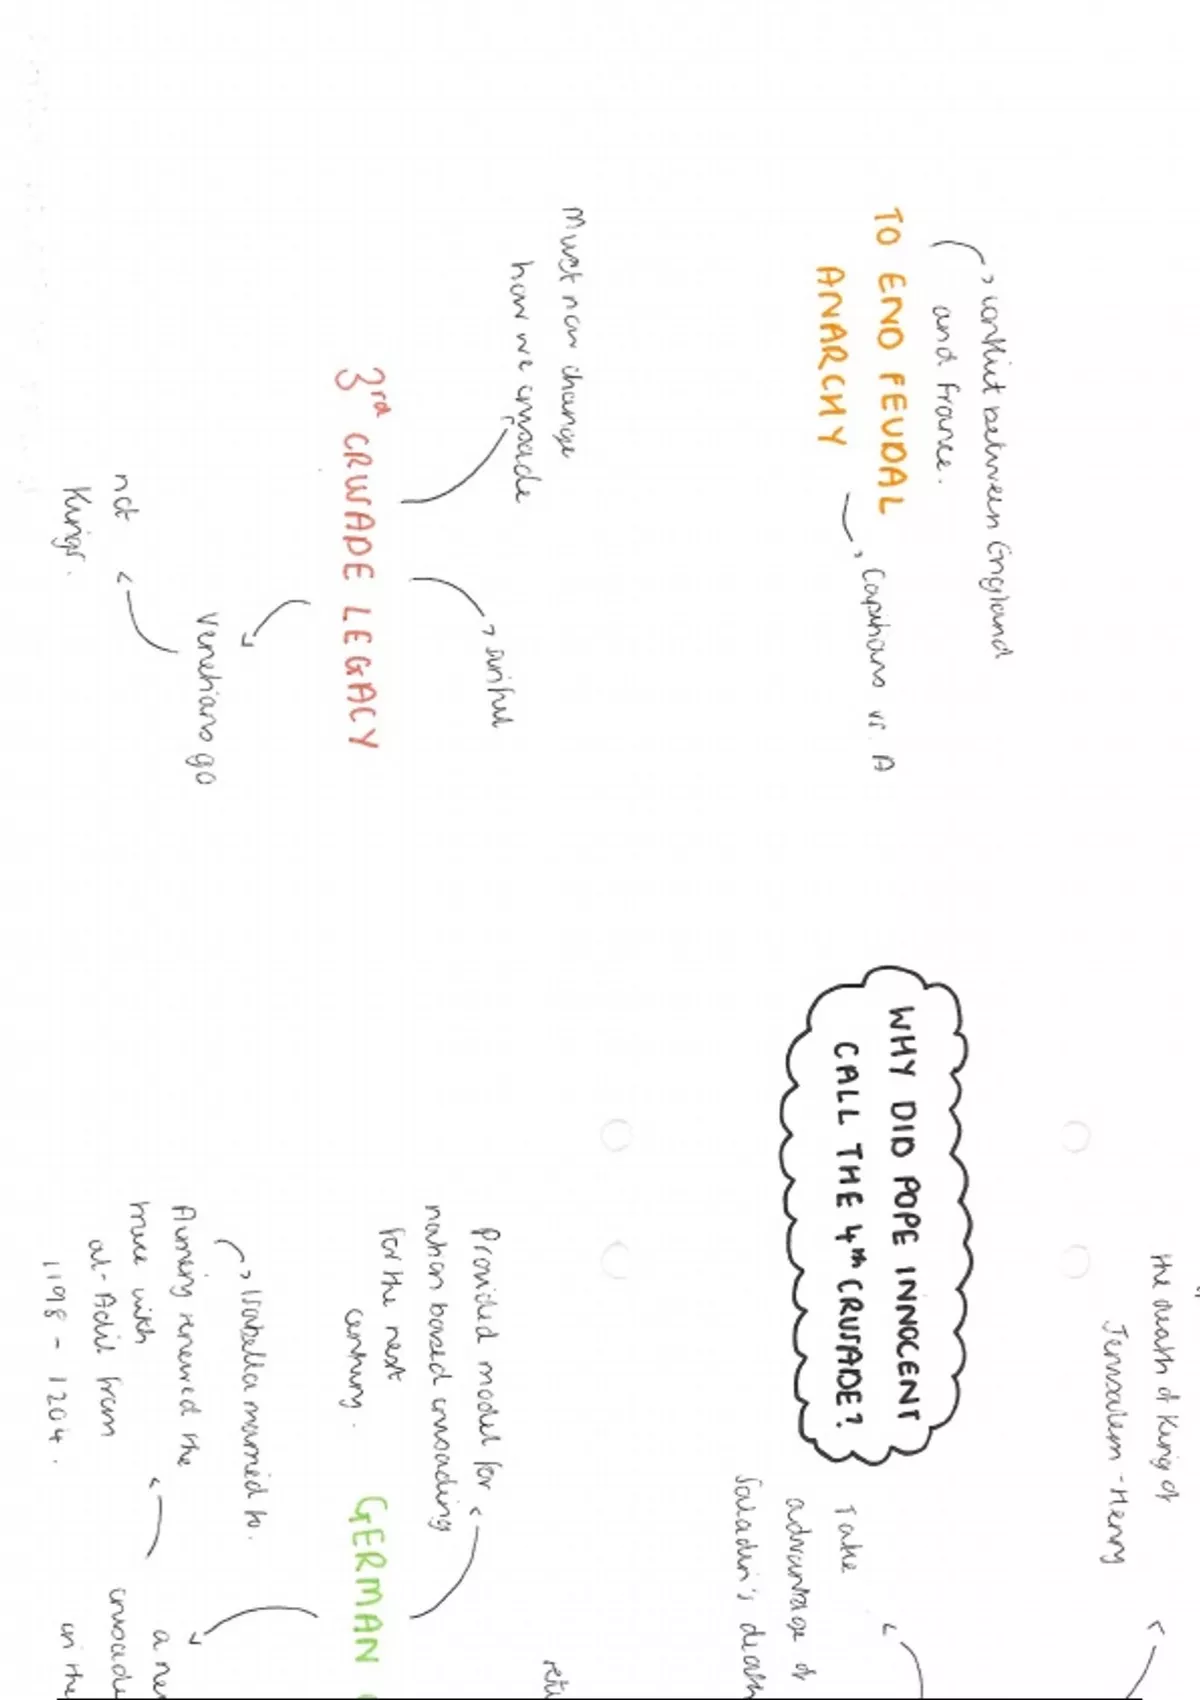 WHY DID POPE INNOCENT
CALL THE 4th CRUSADE?
TO END FEUDAL
ANARCHY
conflict between England
and France.
Capetians vs. A
3rd CRUSADE LEGACY
Must now change
how we crusade
sinful
Venetians go
not
Kings.
the death of King of
Jerusalem - Henry
Take
advantage of
Saladin's death
GERMAN
Provided model for
nation based crusading
for the next
century.
Isabella married to.
Aimery renewed the
truce with
al-Adil from
1198 - 1204.
a
crusade
in the